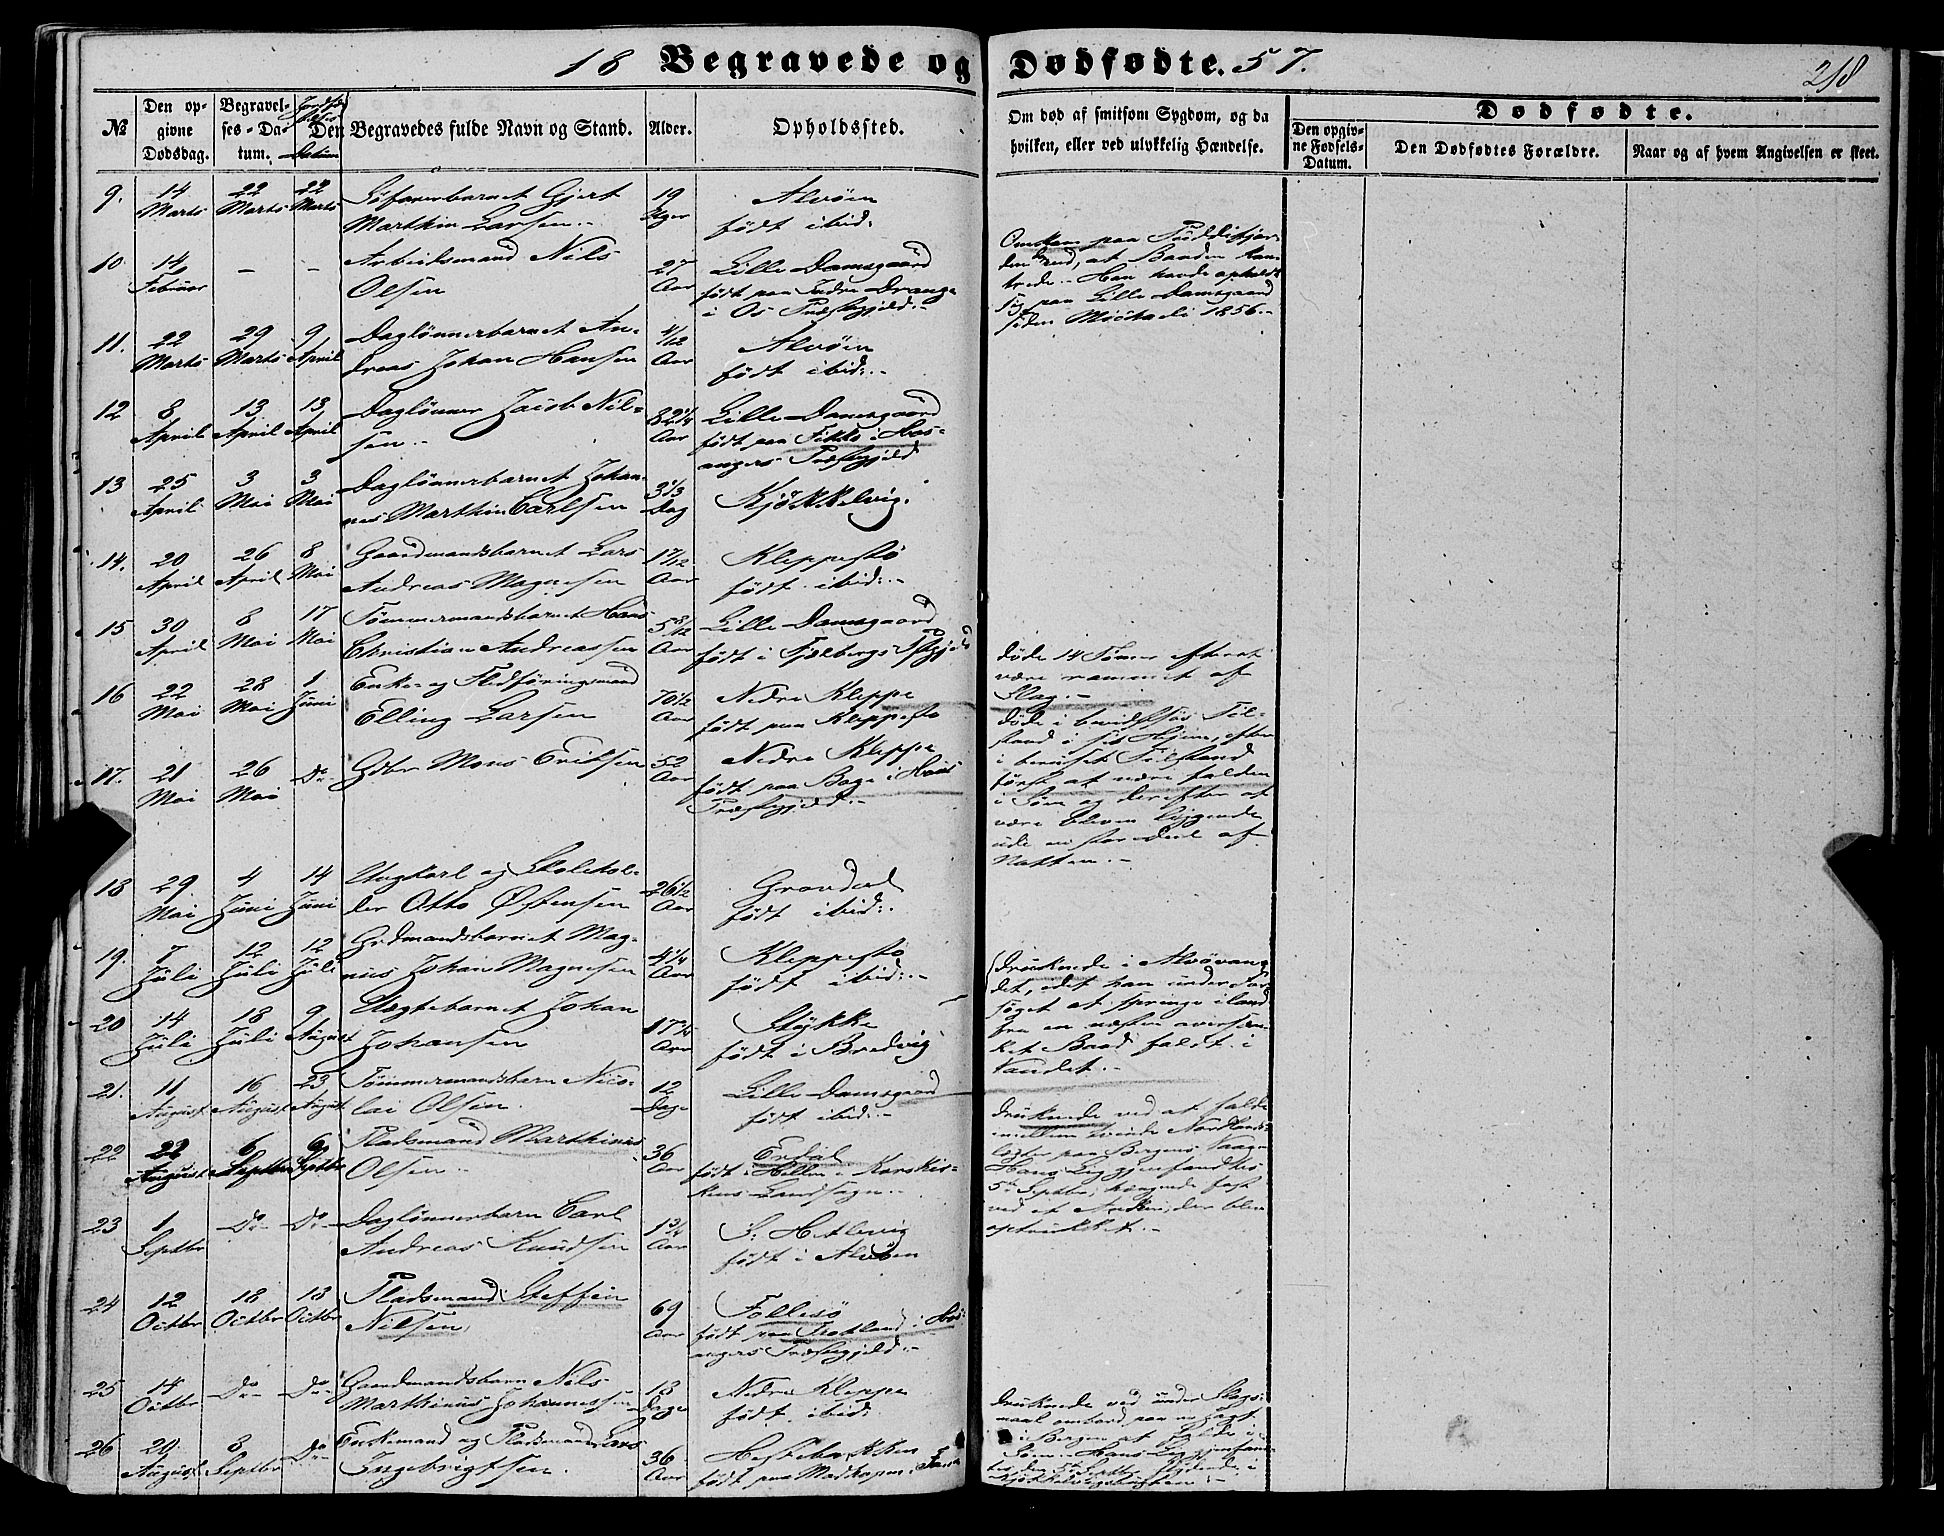 18 Begravede og Dødfødte. 57.
218
№
Den opgivne Dødsdag.
Begravelses-Datum.
Jordfæstelses Datum
Den Begravedes fulde Navn og Stand.
Alder.
Opholdssted.
Om død af smitsom Sygdom, og da hvilken, eller ved ulykkelig Hændelse.
Dødfødte.
Den opgivne Fødsels-Datum.
Den Dødfødtes Forældre.
Naar og af hvem Angivelsen er skeet.
9. 14 Marts 22 Marts 22 Marts
Søfarerbarnet Gjert
Marthin Larsen
19 Uger
Alvøen
født ibid:
10. 14 Februar - -
Arbeidsmand Nils
Olsen
27 Aar
Lille Damsgaard
født paa Indre Drange
i Os Præstegjeld
Omkom paa Puddefjor-
den ved, at Baaden kan-
trede. Han havde opholdt
sig paa Lille Damsgaard
siden Michaeli 1856.-
11. 22 Marts 29 Marts 9 April
Daglønnerbarnet An-
dreas Johan Hansen
4/12 Aar
Alvøen
født ibid:
12 8 April 13 April 13 April
Daglønner Jacob Nil-
sen
82 1/4 Aar
Lille Damsgaard
født paa Fikke i Hos-
angers Præstegjeld
13 25 April 3 Mai 3 Mai
Daglønnerbarnet Johan-
nes Marthin Carlsen
3 1/3 Dag
Kjøkkelvig.
14. 20 April 26 April 8 Mai
Gaardmandsbarnet Lars
Andreas Magnesen
1 7/12 Aar
Kleppestø
født ibid:
15 30 April 8 Mai 17 Mai
Tømmermandsbarnet Hans
Christian Andreassen
5 8/12 Aar
Lille Damsgaard
født i Fjelbergs Pstgjeld
16 22 Mai 28 Mai 1 Juni
Enke- og Flødføringsmand
Elling Larsen
70 1/2 Aar
Nedre Kleppe
født paa Kleppestø
døde 14 Timer efter at
være rammet af
Slag.-
17. 21 Mai 26 Mai Do
Gdbr Mons Eriksen
52 Aar
Nedre Kleppe
født paa Bage i Hous
Præstegjeld.-
døde i bevidstløs Til-
stand i sit Hjem, efter
i beruset Tilstand
først at være falden
i Søen og derefter at
være bleven liggende
ude en stor Deel af
Natten.-
18 29 Mai 4 Juni 14 Juni
Ungkarl og Skolehol-
der Otto Østensen
26 1/2 Aar
Gravdal
født ibid:
19. 7 Juli 12 Juli 12 Juli
Grdmandsbarnet Mag-
nus Johan Magnesen
4 1/4 Aar
Kleppestø
født ibid:
20 14 Juli 18 Juli 9 August
Uægtebarnet Johan
Johansen
Aar
Stykke
født i Bredvig
druknede i Alvøvan-
det, idet han under For-
søget at springe iland
fra en næsten oversæn-
ket Baad faldt i
Vandet.-
21. 11 August 16 August 23 August
Tømmermandsbarn Nico-
lai Olsen
12 Dage
Lille Damsgaard
født ibid:
22 22 August 6 Septbr 6 Septbr
Pladsmand Marthinus
Olsen
36 Aar
Erdal
født i Hillen i Korskir-
kens Landsogn
druknede ved at falde
imellem tvende Nordlands-
jægter paa Bergens Vaag
Hans Lig gjenfandtes
5te Septbr, hængende fast
ved et Anker, der blev
optrukket.-
23 1 Septbr Do Do
Daglønnerbarn Carl
Andreas Knudsen
1 3/4 Aar
S. Hetlevig
født i Alvøen
24 12 Octbr 18 Octbr 18 Octbr
Pladsmand Steffen
Nilsen
69 Aar
Follesø
født paa Tvetland i Hos-
angers Præstegjeld
25 14 Octbr Do Do
Gaardmandsbarn Nils
Marthinus Johannessen
13 Dage
Nedre Kleppe
født ibid:
26 29 August 8 Septbr Do
Enkemand og Pladsmand Lars
Ingebrigtsen
36 Aar
Hestebakken
født paa
druknede ved under Slags-
maal ombord paa en Jagt
i Bergen at falde i
Søen. Hans Lig gjenfand-
tes den 5te Septbr flydende i